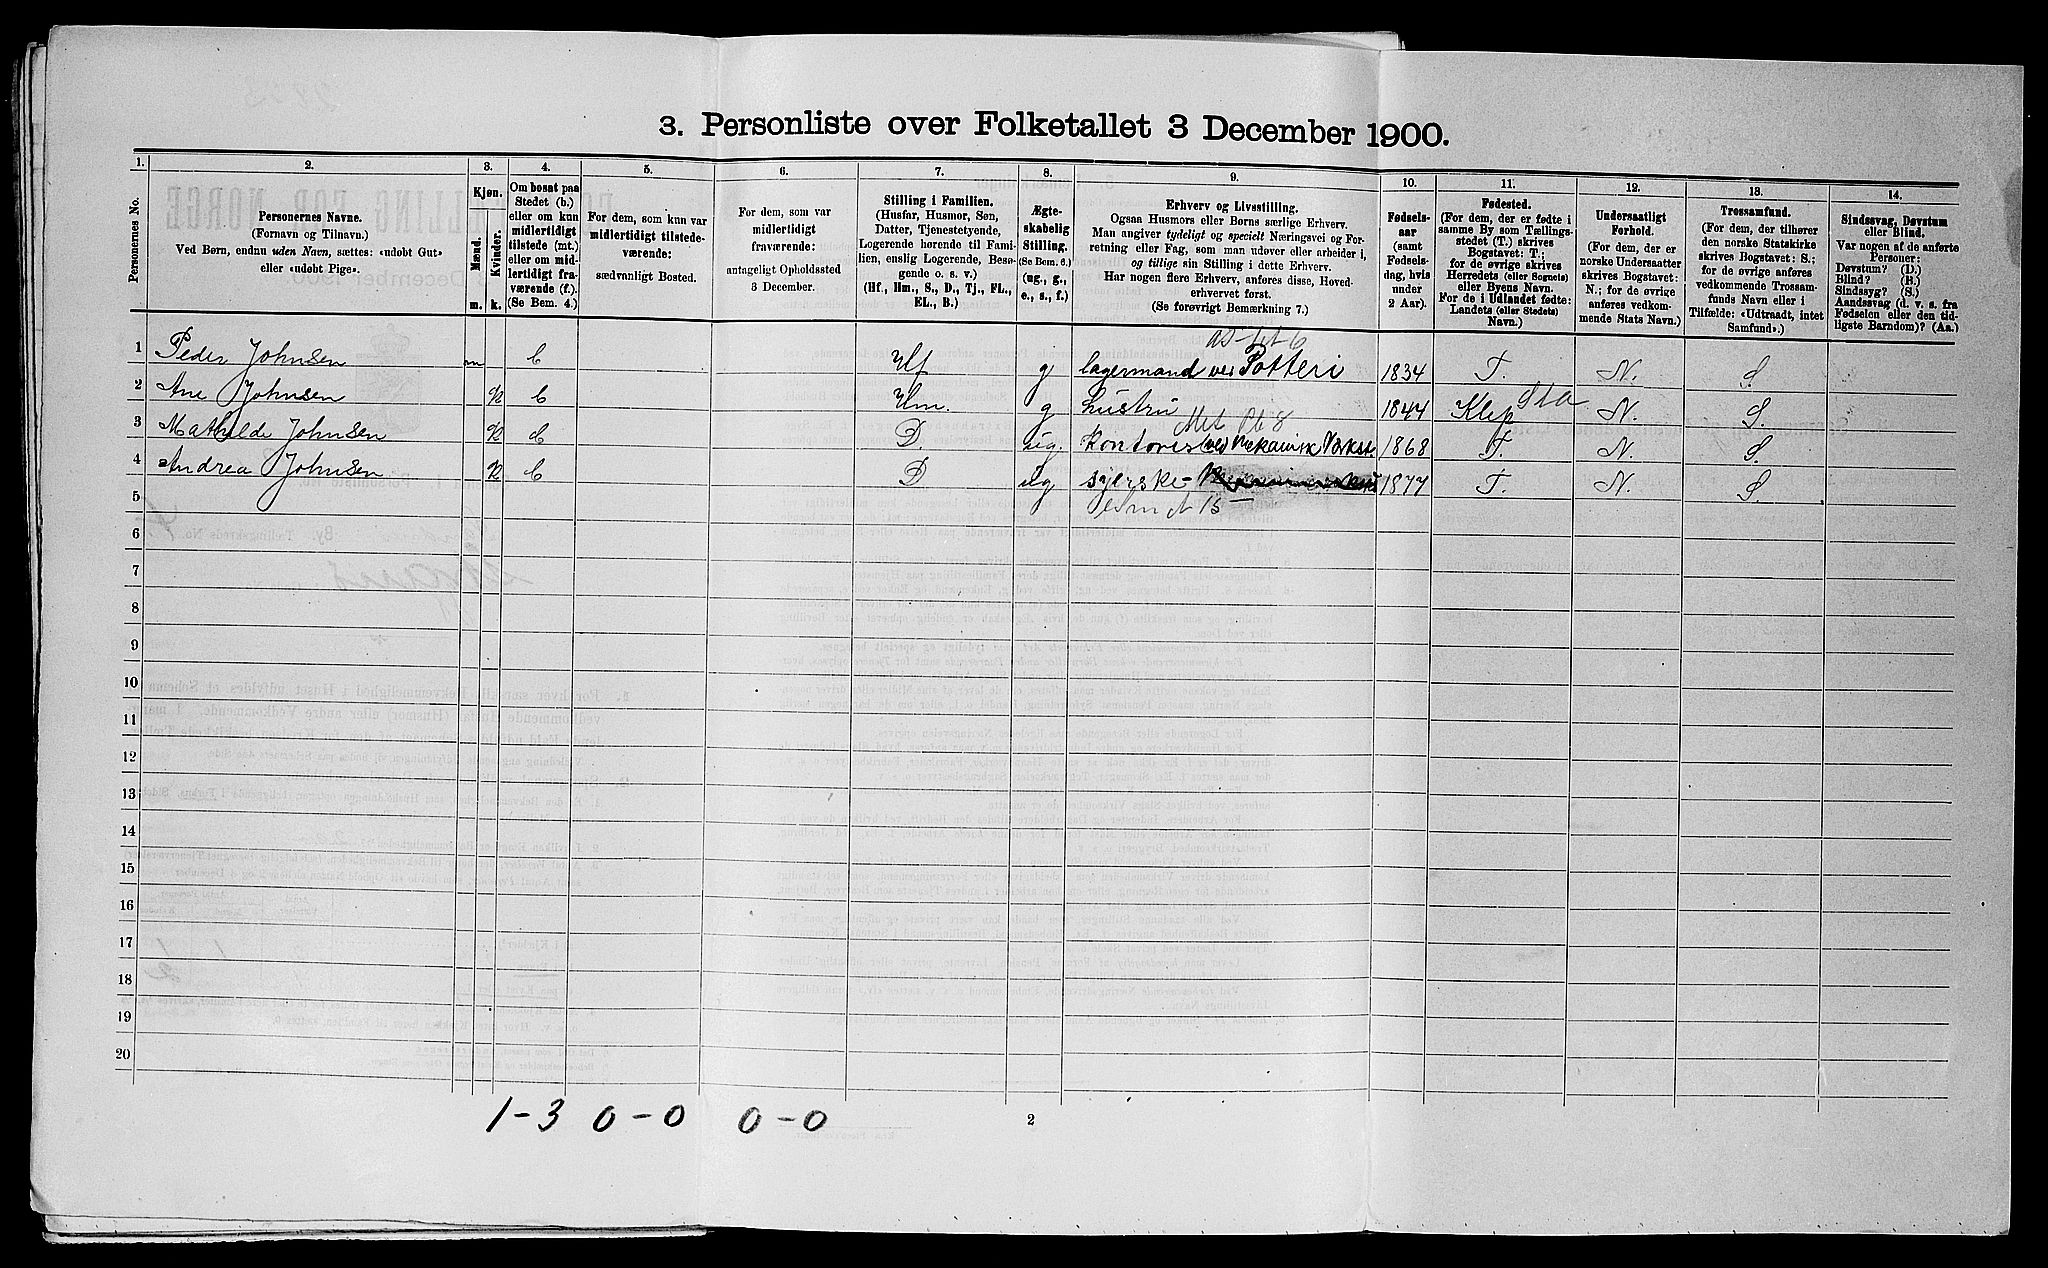 3. Personliste over Folketallet 3 December 1900.
1. 2. 3. 4. 5. 6. 7. 8. 9. 10. 11. 12. 13. 14.
Personernes No.
Personernes Navne.
(Fornavn og Tilnavn.)
Ved Børn, endnu uden Navn, sættes: «udøbt Gut»
eller «udøbt Pige».
Kjøn.
Mænd.
Kvinder.
m. k.
Om bosat paa
Stedet (b.)
eller om kun
midlertidigt
tilstede (mt.)
eller om mid-
lertidigt fra-
værende (f.).
(Se Bem. 4.)
For dem, som kun var
midlertidigt tilstede-
værende:
sædvanligt Bosted.
For dem, som var
midlertidigt
fraværende:
antageligt Opholdssted
3 December.
Stilling i Familien.
(Husfar, Husmor, Søn,
Datter, Tjenestetyende,
Logerende hørende til Fami-
lien, enslig Logerende, Besø-
gende o. s. v.)
(Hf., Hm., S., D., Tj., FL.,
EL., B.)
Ægte-
skabelig
Stilling.
(Se Bem. 6.)
(ug., g.,
e., s., f.)
Erhverv og Livsstilling.
Ogsaa Husmors eller Børns særlige Erhverv.
Man angiver tydeligt og specielt Næringsvei og For-
retning eller Fag, som man udøver eller arbeider i,
og tillige sin Stilling i dette Erhverv.
Har nogen flere Erhverv, anføres disse, Hoved-
erhvervet først.
(Se forøvrigt Bemærkning 7.)
Fødsels-
aar
(samt
Fødsels-
dag, hvis
under
2 Aar).
Fødested.
(For dem, der er fødte i
samme By som Tællings-
stedet (T.) skrives
Bogstavet: T.;
for de øvrige skrives
Herredets (eller Sognets)
eller Byens Navn.
For de i Udlandet fødte:
Landets (eller Stedets)
Navn.)
Undersaatligt
Forhold.
(For dem, der er
norske Undersaatter
skrives Bogstavet:
N.; for de øvrige
anføres vedkom-
mende Stats Navn.)
Trossamfund.
(For dem, der tilhører
den norske Statskirke
skrives Bogstavet: S.;
for de øvrige anføres
vedkommende Trossam-
funds Navn eller i
Tilfælde: «Udtraadt, intet
Samfund».)
Sindssvag, Døvstum
eller Blind.
Var nogen af de anførte
Personer:
Døvstum? (D.)
Blind? (B.)
Sindssyg? (S.)
Aandssvag (d. v. s. fra
Fødselen eller den tid-
ligste Barndom)? (Aa.)
1 Peder Johnsen m b Hf g lagermand ved Potteri 1834 T. N. S.
2 Ane Johnsen k b Hm. g hustru 1844 Klep Sta N. S.
Met Pb 8
3 Mathilde Johnsen k b D. ug. kontorist ved Mekanisk Værkst. 1868 T. N. S.
4 Andrea Johnsen k b D ug syerske 1877 T. N. S.
5
6
7
8
9
10
11
12
13
14
15
16
17
18
19
20
1-3 0-0 0-0
2